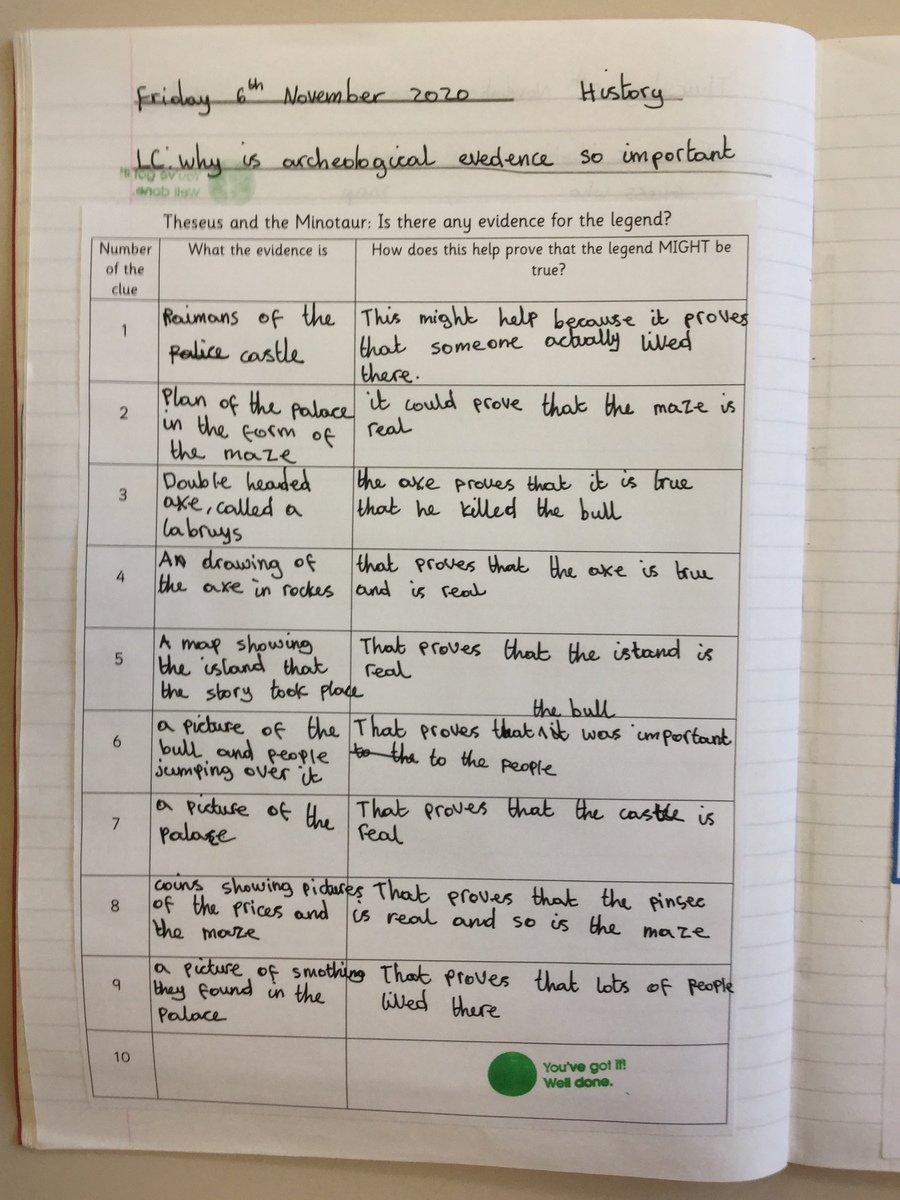 Friday 6th November 2020 History
LC: why is archeological evedence so important
You've got it!
Well done
Theseus and the Minotaur: Is there any evidence for the legend?
Number
of the
clue
What the evidence is
How does this help prove that the legend MIGHT be
true?
1
Raimans of the
palice castle
This might help because it proves
that someone actually lived
there.
2
Plan of the palace
in the form of
the maze
it could prove that the maze is
real
3
Double headed
axe, called a
labruys
the axe proves that it is true
that he killed the bull
4
An drawing of
the axe in rockes
that proves that the axe is true
and is real
5
A map showing
the island that
the story took place
That proves that the istand is
real
6
a picture of the
bull and people
jumping over it
the bull
That proves that it was important
to the to the people
7
a picture of the
palace
That proves that the castle is
real
8
coins showing pictures
of the prices and
the maze
That proves that the pinsec
is real and so is the maze
9
a picture of smothing
they found in the
palace
That proves that lots of people
lived there
10
You've got it!
Well done.